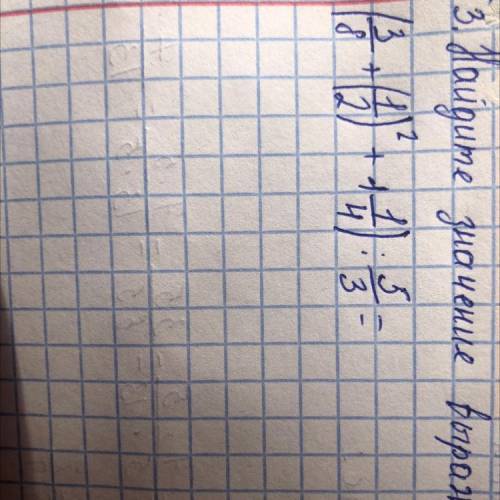 3. Найдите значение выраж
(3/8 + (1/2)² + 1 1/4) · 5/3 =